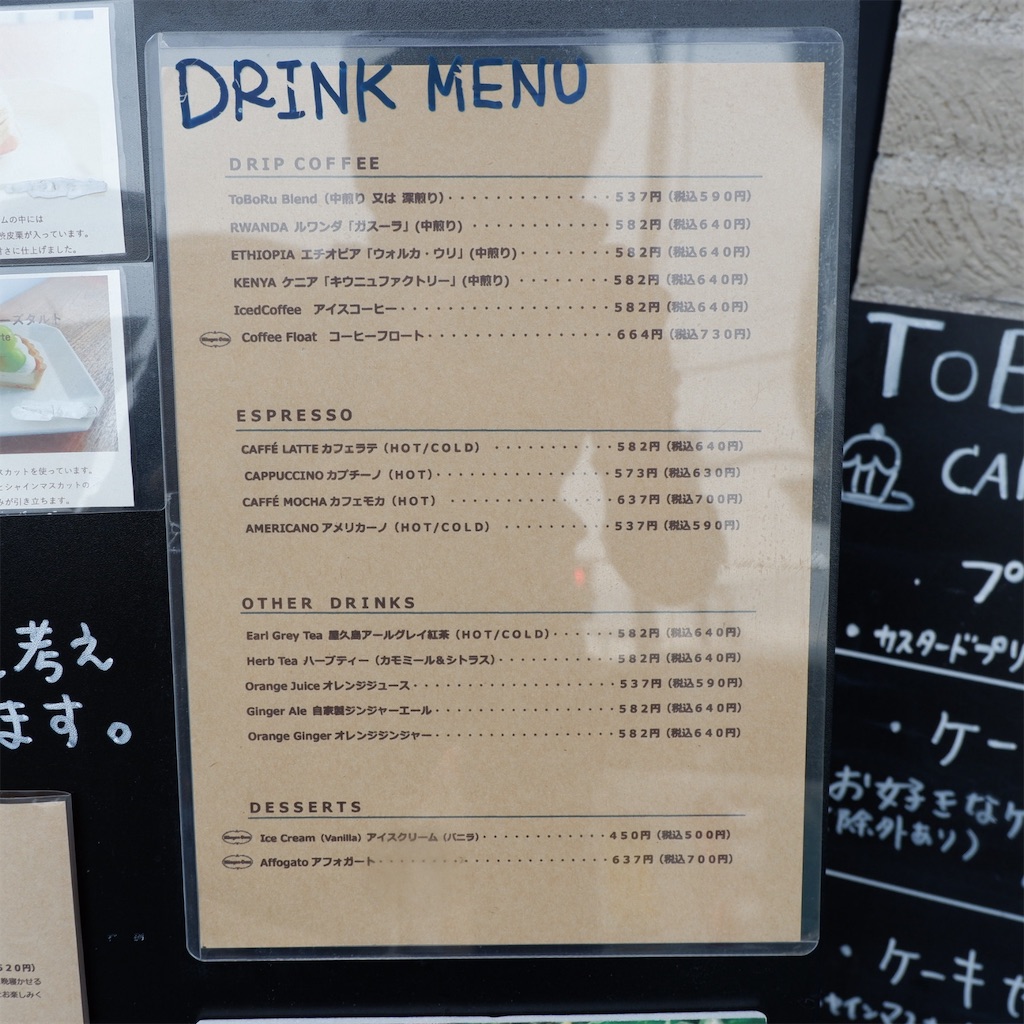 DRINK MENU
DRIP COFFEE
ToBoRu Blend（中煎り 又は 深煎り）・・・・・・・・・・・・・537円（税込590円）
RWANDA ルワンダ「ガスーラ」(中煎り) ・・・・・・・・・・・582円（税込640円）
ETHIOPIA エチオピア「ウォルカ・ウリ」(中煎り)・・・・・・・582円（税込640円）
KENYA ケニア「キウニュファクトリー」(中煎り) ・・・・・・・582円（税込640円）
IcedCoffee アイスコーヒー・・・・・・・・・・・・・・・・・582円（税込640円）
Coffee Float コーヒーフロート・・・・・・・・・・・・・・・664円（税込730円）
ESPRESSO
CAFFÉ LATTE カフェラテ（HOT/COLD） ・・・・・・・・・・582円（税込640円）
CAPPUCCINO カプチーノ（HOT）・・・・・・・・・・・・・・573円（税込630円）
CAFFÉ MOCHA カフェモカ（HOT） ・・・・・・・・・・・・・637円（税込700円）
AMERICANO アメリカーノ（HOT/COLD） ・・・・・・・・・537円（税込590円）
OTHER DRINKS
Earl Grey Tea 屋久島アールグレイ紅茶（HOT/COLD）・・・・・582円（税込640円）
Herb Tea ハーブティー（カモミール＆シトラス）・・・・・・・・・582円（税込640円）
Orange Juice オレンジジュース・・・・・・・・・・・・・・・・537円（税込590円）
Ginger Ale 自家製ジンジャーエール・・・・・・・・・・・・・・582円（税込640円）
Orange Ginger オレンジジンジャー・・・・・・・・・・・・・・582円（税込640円）
DESSERTS
Ice Cream（Vanilla）アイスクリーム（バニラ）・・・・・・・・・・450円（税込500円）
Affogato アフォガート・・・・・・・・・・・・・・・・・・・637円（税込700円）
ムの中には
渋皮栗が入っています。
さに仕上げました。
ーズタルト
スカットを使っています。
とシャインマスカットの
みが引き立ちます。
考え
ます。
520円）
晩寝かせる
お楽しみく
ToB
CAF
・プ
・カスタードプリ
・ケー
お好きなケ
除外あり）
・ケーキセ
ャインマス